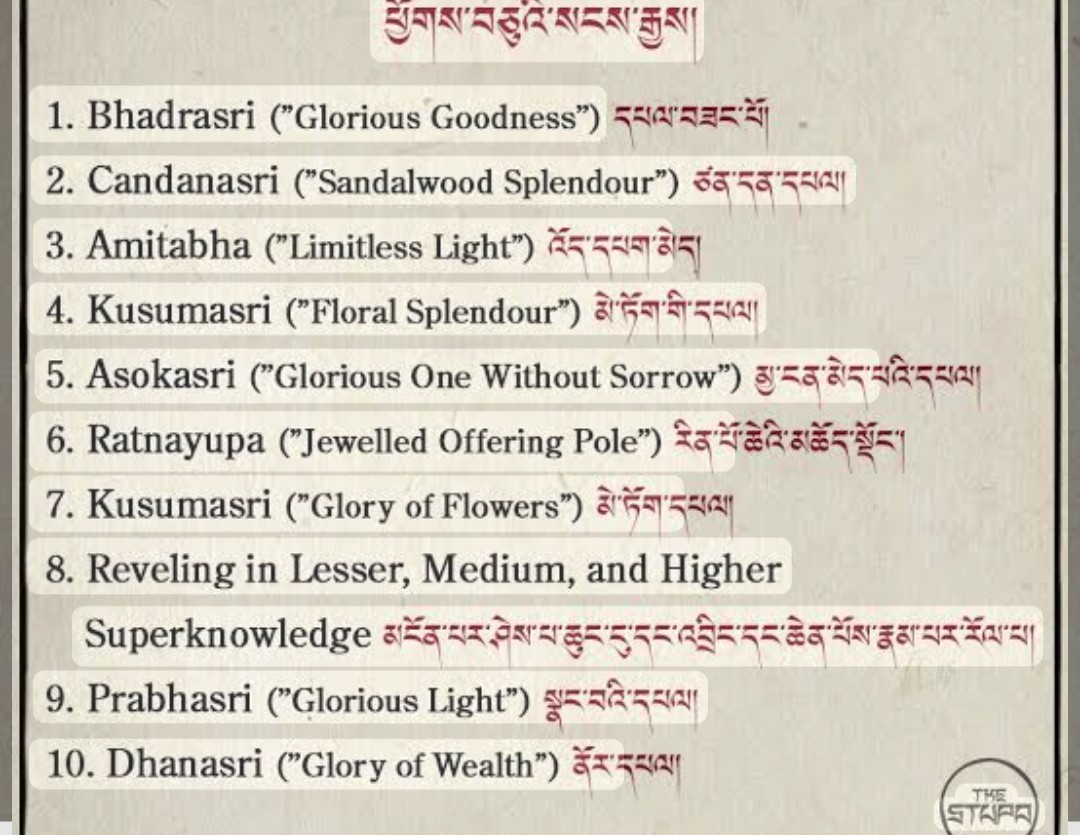 ཕྱོགས་བཅུའི་སངས་རྒྱས།
1. Bhadrasri (”Glorious Goodness”) དཔལ་བཟང་པོ།
2. Candanasri (”Sandalwood Splendour”) ཙན་དན་དཔལ།
3. Amitabha (”Limitless Light”) འོད་དཔག་མེད།
4. Kusumasri (”Floral Splendour”) མེ་ཏོག་གི་དཔལ།
5. Asokasri (”Glorious One Without Sorrow”) མྱ་ངན་མེད་པའི་དཔལ།
6. Ratnayupa (”Jewelled Offering Pole”) རིན་པོ་ཆེའི་མཆོད་སྡོང་།
7. Kusumasri (”Glory of Flowers”) མེ་ཏོག་དཔལ།
8. Reveling in Lesser, Medium, and Higher
Superknowledge མངོན་པར་ཤེས་པ་ཆུང་ངུ་དང་འབྲིང་དང་ཆེན་པོས་རྣམ་པར་རོལ་པ།
9. Prabhasri (”Glorious Light”) སྣང་བའི་དཔལ།
10. Dhanasri (”Glory of Wealth”) ནོར་དཔལ།
THE
STUPA